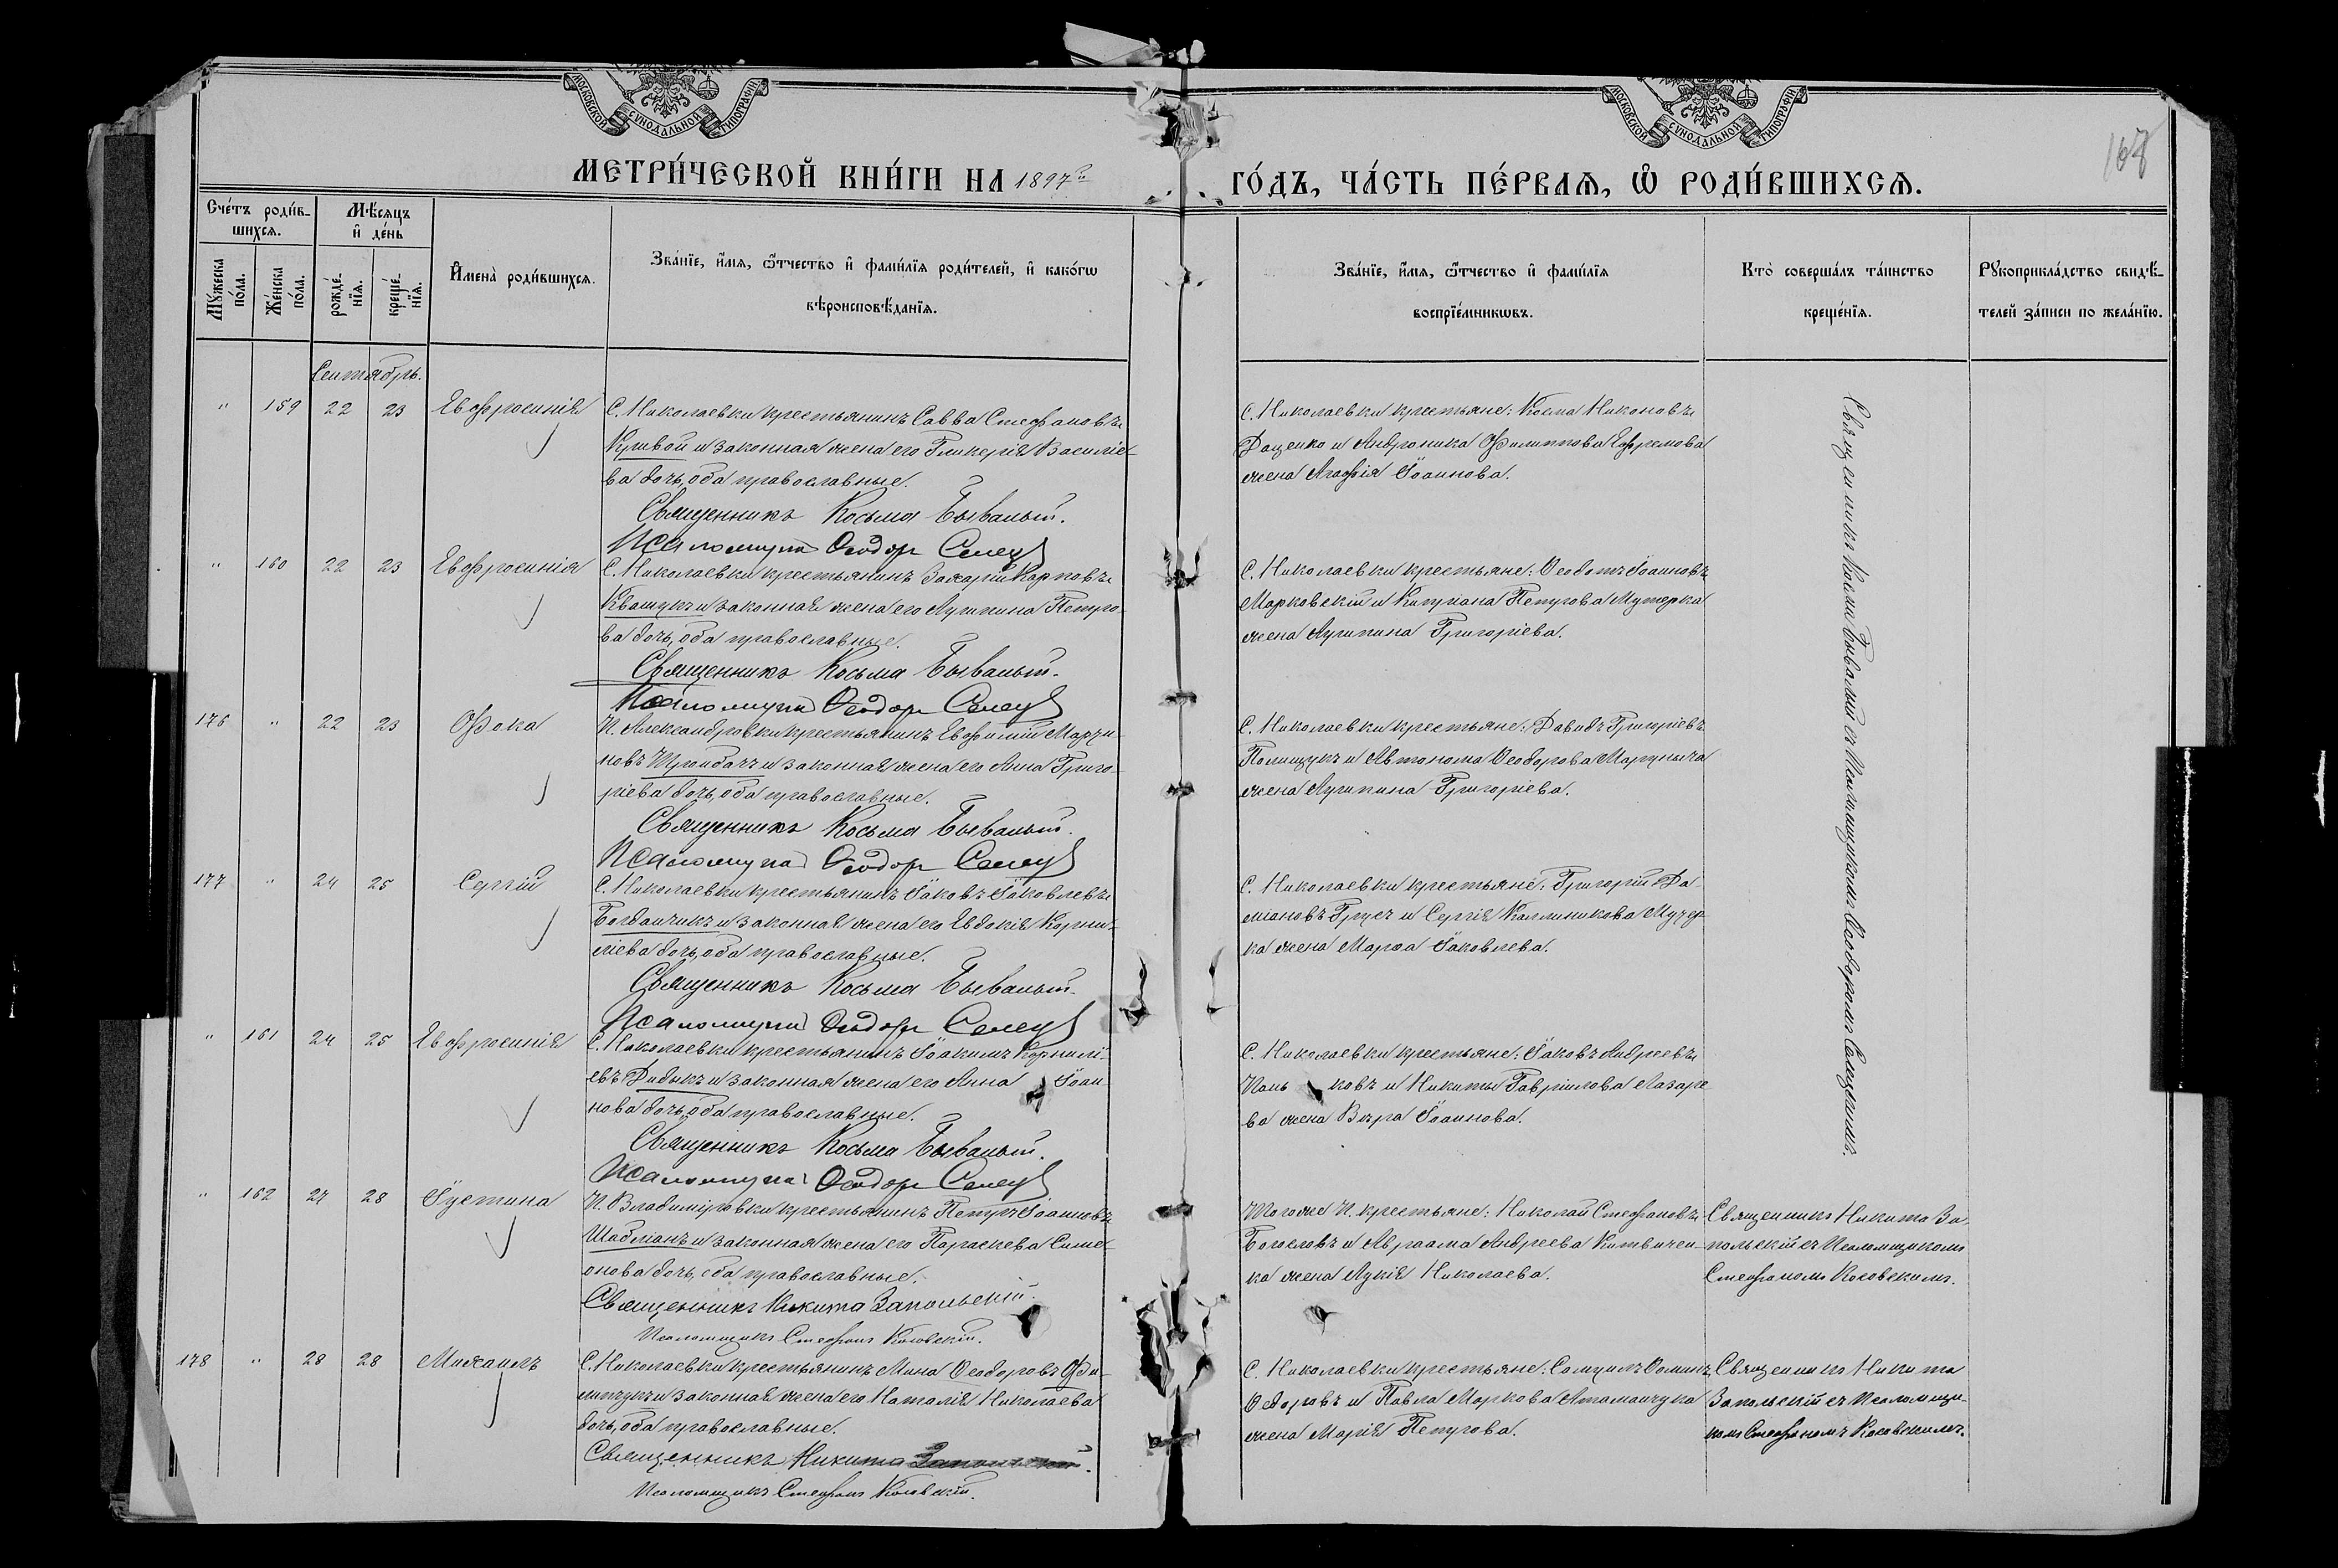 МОСКОВСКОЙ СѴНОДАЛЬНОЙ ТИПОГРАФІИ
МОСКОВСКОЙ СѴНОДАЛЬНОЙ ТИПОГРАФІИ
168
МЕТРИ́ЧЕСКОЙ КНИ́ГИ НА 1897й
ГО́ДЪ, ЧА́СТЬ ПЕ́РВАѦ, Ѡ҆ РОДИ́ВШИХСѦ.
Сче́тъ роди́в-
шихсѧ.
Мѣ́сѧцъ
и҆ де́нь
Мꙋ́жеска
по́ла.
Же́нска
по́ла.
рожде́-
нїѧ.
креще́-
нїѧ.
И҆мена̀ роди́вшихсѧ.
Зва́нїе, и҆́мѧ, ѻ҆́тчество и҆ фами́лїѧ роди́телей, и҆ како́гѡ
вѣроисповѣ́данїѧ.
Зва́нїе, и҆́мѧ, ѻ҆́тчество и҆ фами́лїѧ
воспрїе́мникѡвъ.
Кто̀ соверша́лъ та́инство
креще́нїѧ.
Рꙋкоприкла́дство свидѣ́-
телей за́писи по жела́нїю.
Сентябрь.
" 159 22 23 Евфросинія
С. Николаевки крестьянинъ Савва Стефановъ
Кривой и законная жена его Гликерія Василіе-
ва дочь, оба православные.
Священникъ Косьма Бывалый.
Псаломщикъ Ѳеодоръ
С. Николаевки крестьяне: Косма Никоновъ
Даценко и Андроника Филиппова Ефремова
жена Агафія Іоаннова.
Священникъ Косма Бывалый съ Псаломщикомъ Ѳеодоромъ
" 160 22 23 Евфросинія
С. Николаевки крестьянинъ Захарій Карповъ
Квашукъ и законная жена его Лукина Петро-
ва дочь, оба православные.
Священникъ Косьма Бывалый.
Псаломщикъ Ѳеодоръ
С. Николаевки крестьяне: Ѳеодотъ Іоанновъ
Марковскій и Кипріана Петрова Мутерка
жена Лукина Григоріева.
176 " 22 23 Фока
П. Александровки крестьянинъ Евфимій Марти-
новъ и законная жена его Анна Григо-
ріева дочь, оба православные.
Священникъ Косьма Бывалый.
Псаломщикъ Ѳеодоръ
С. Николаевки крестьяне: Давидъ Григоріевъ
Полищукъ и Автонома Ѳеодорова Мартыча
жена Лукина Григоріева.
177 " 24 25 Сергій
С. Николаевки крестьянинъ Іаковъ Іаковлевъ
Богданчикъ и законная жена его Евдокія Корни-
ліева дочь, оба православные.
Священникъ Косьма Бывалый.
Псаломщикъ Ѳеодоръ
С. Николаевки крестьяне: Григорій Да-
міановъ и Сергія Каллиникова Мутер-
ка жена Марѳа Іаковлева.
" 161 24 25 Евфросинія
С. Николаевки крестьянинъ Іоакимъ Корнилі-
евъ Дидыкъ и законная жена его Анна Іоан-
нова дочь, оба православные.
Священникъ Косьма Бывалый.
Псаломщикъ Ѳеодоръ
С. Николаевки крестьяне: Іаковъ Андреевъ
Пань ковъ и Никиты Гавріилова Лазаре
ва жена Вѣра Іоаннова.
" 162 27 28 Іустина
П. Владиміровки крестьянинъ Петръ Іоанновъ
Шабліанъ и законная жена его Параскева Симе-
онова дочь, оба православные.
Священникъ Никита Запольскій.
Псаломщикъ Стефанъ Косовскій.
Тогоже П. крестьяне: Николай Стефановъ
Богословъ и Авраама Андреева Китвичен-
ка жена Лукія Николаева.
Священникъ Никита За-
польскій съ Псаломщикомъ
Стефаномъ Косовскимъ.
178 " 28 28 Михаилъ
С. Николаевки крестьянинъ Мина Ѳеодоровъ Фи-
липчукъ и законная жена его Наталія Николаева
дочь, оба православные.
Священникъ Никита Запольскій.
Псаломщикъ Стефанъ Косовскій.
С. Николаевки крестьяне: Самуилъ Ѳоминъ
Ѳедоровъ и Павла Маркова Атаманчука
жена Марія Петрова.
Священникъ Никита
Запольскій съ Псаломщи-
комъ Стефаномъ Косовскимъ.